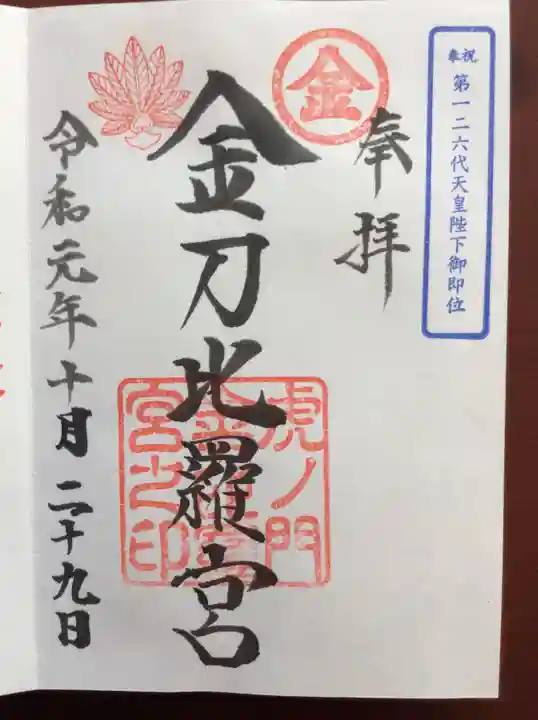 奉祝 第一二六代天皇陛下御即位
金
奉拝
金刀比羅宮
虎ノ門
金刀比羅
宮之印
令和元年十月二十九日